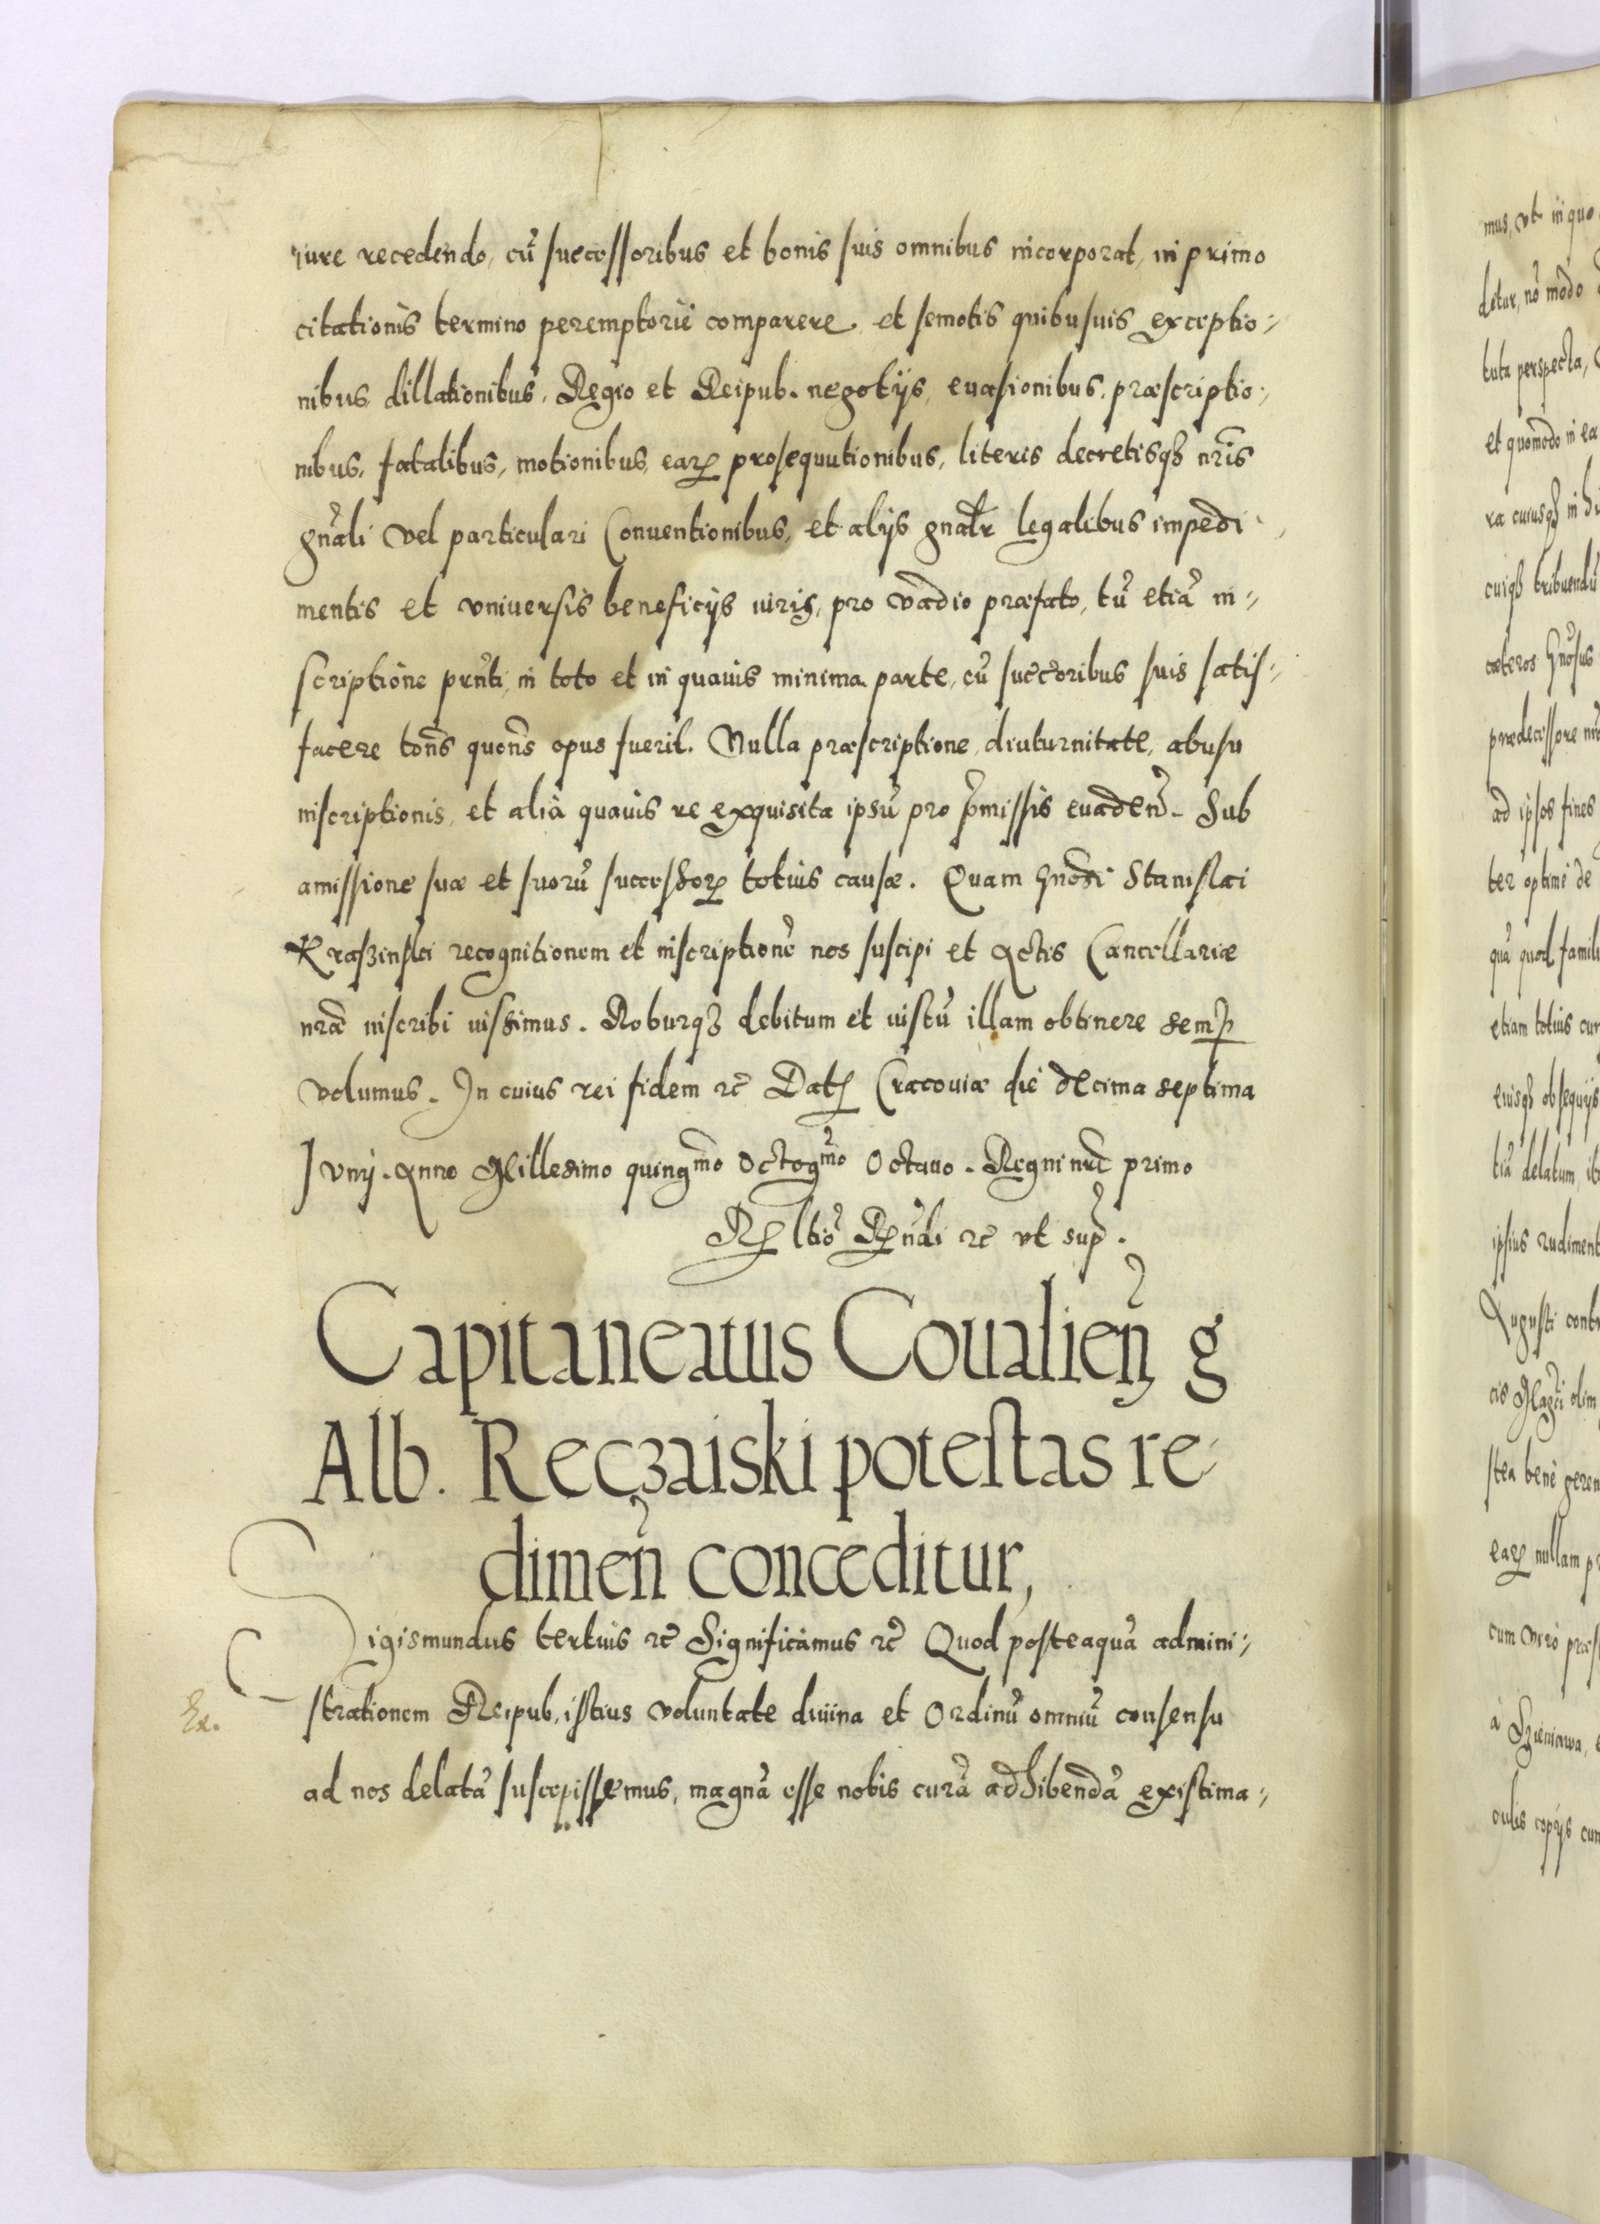 iure recedendo, cū successoribus et bonis suis omnibus incorporat, in primo
citationis termino peremptorie comparere, et semotis quibusuis exceptio:
nibus, dillationibus, Regio et Reipub. negotijs, euasionibus, præscriptio:
nibus, fatalibus, motionibus, earꝝ prosequutionibus, literis decretisqꝫ nr̄is
gnāli vel particulari Conuentionibus, et alijs gnalr̄ legalibus impedi
mentis et vniuersis beneficijs iuris, pro vadio præfato, tū etiā in-
scriptione pn̄ti, in toto et in quauis minima parte, cū succoribus suis satis-
facere tons quons opus fuerit. Nulla præscriptione, diuturnitate, abusu
inscriptionis, et alia quauis re exquisita ipsū pro p̄missis euadeñ. Sub
amissione suæ et suorū successorꝝ totius causæ. Quam Gnosi Stanislai
Kraszinski recognitionem et inscriptionē nos suscipi et Actis Cancellariæ
nræ inscribi iussimus. Roburqꝫ debitum et iustū illam obtinere semꝑ
volumus. In cuius rei fidem ꝛc̄ Datꝫ Cracouiæ die decima septima
Iunij. Anno Millesimo quingmo Octogmo Octauo. Regni nri primo
Rꝫ ltio Rndi ꝛc̄ vt sup.
Capitaneatus Coualieñ g
Alb. Reczaiski potestas re-
dimeñ conceditur,
Sigismundus tertius ꝛc̄ Significamus ꝛc̄ Quod posteaquā admini:
Ex.
strationem Reipub. istius voluntate diuina et Ordinū omniū consensu
ad nos delatā suscepissemus, magnā esse nobis curā adhibendā existima:
mus, vt in quo
detur, nō modo
tuta perspecta,
et quomodo in ea
ra cuiusqꝫ in hu
cuiqꝫ tribuendū
cæteros Gnosus
prædecessore
ad ipsos fines
ter optime de
quā quod famili
etiam totius cur
eiusqꝫ obsequijs
tiā delatum, ib
ipsius rudiment
Augusti cont
olim
stea bene geren
earꝝ nullam p
cum vero præs
à Sieniawa,
copijs cum